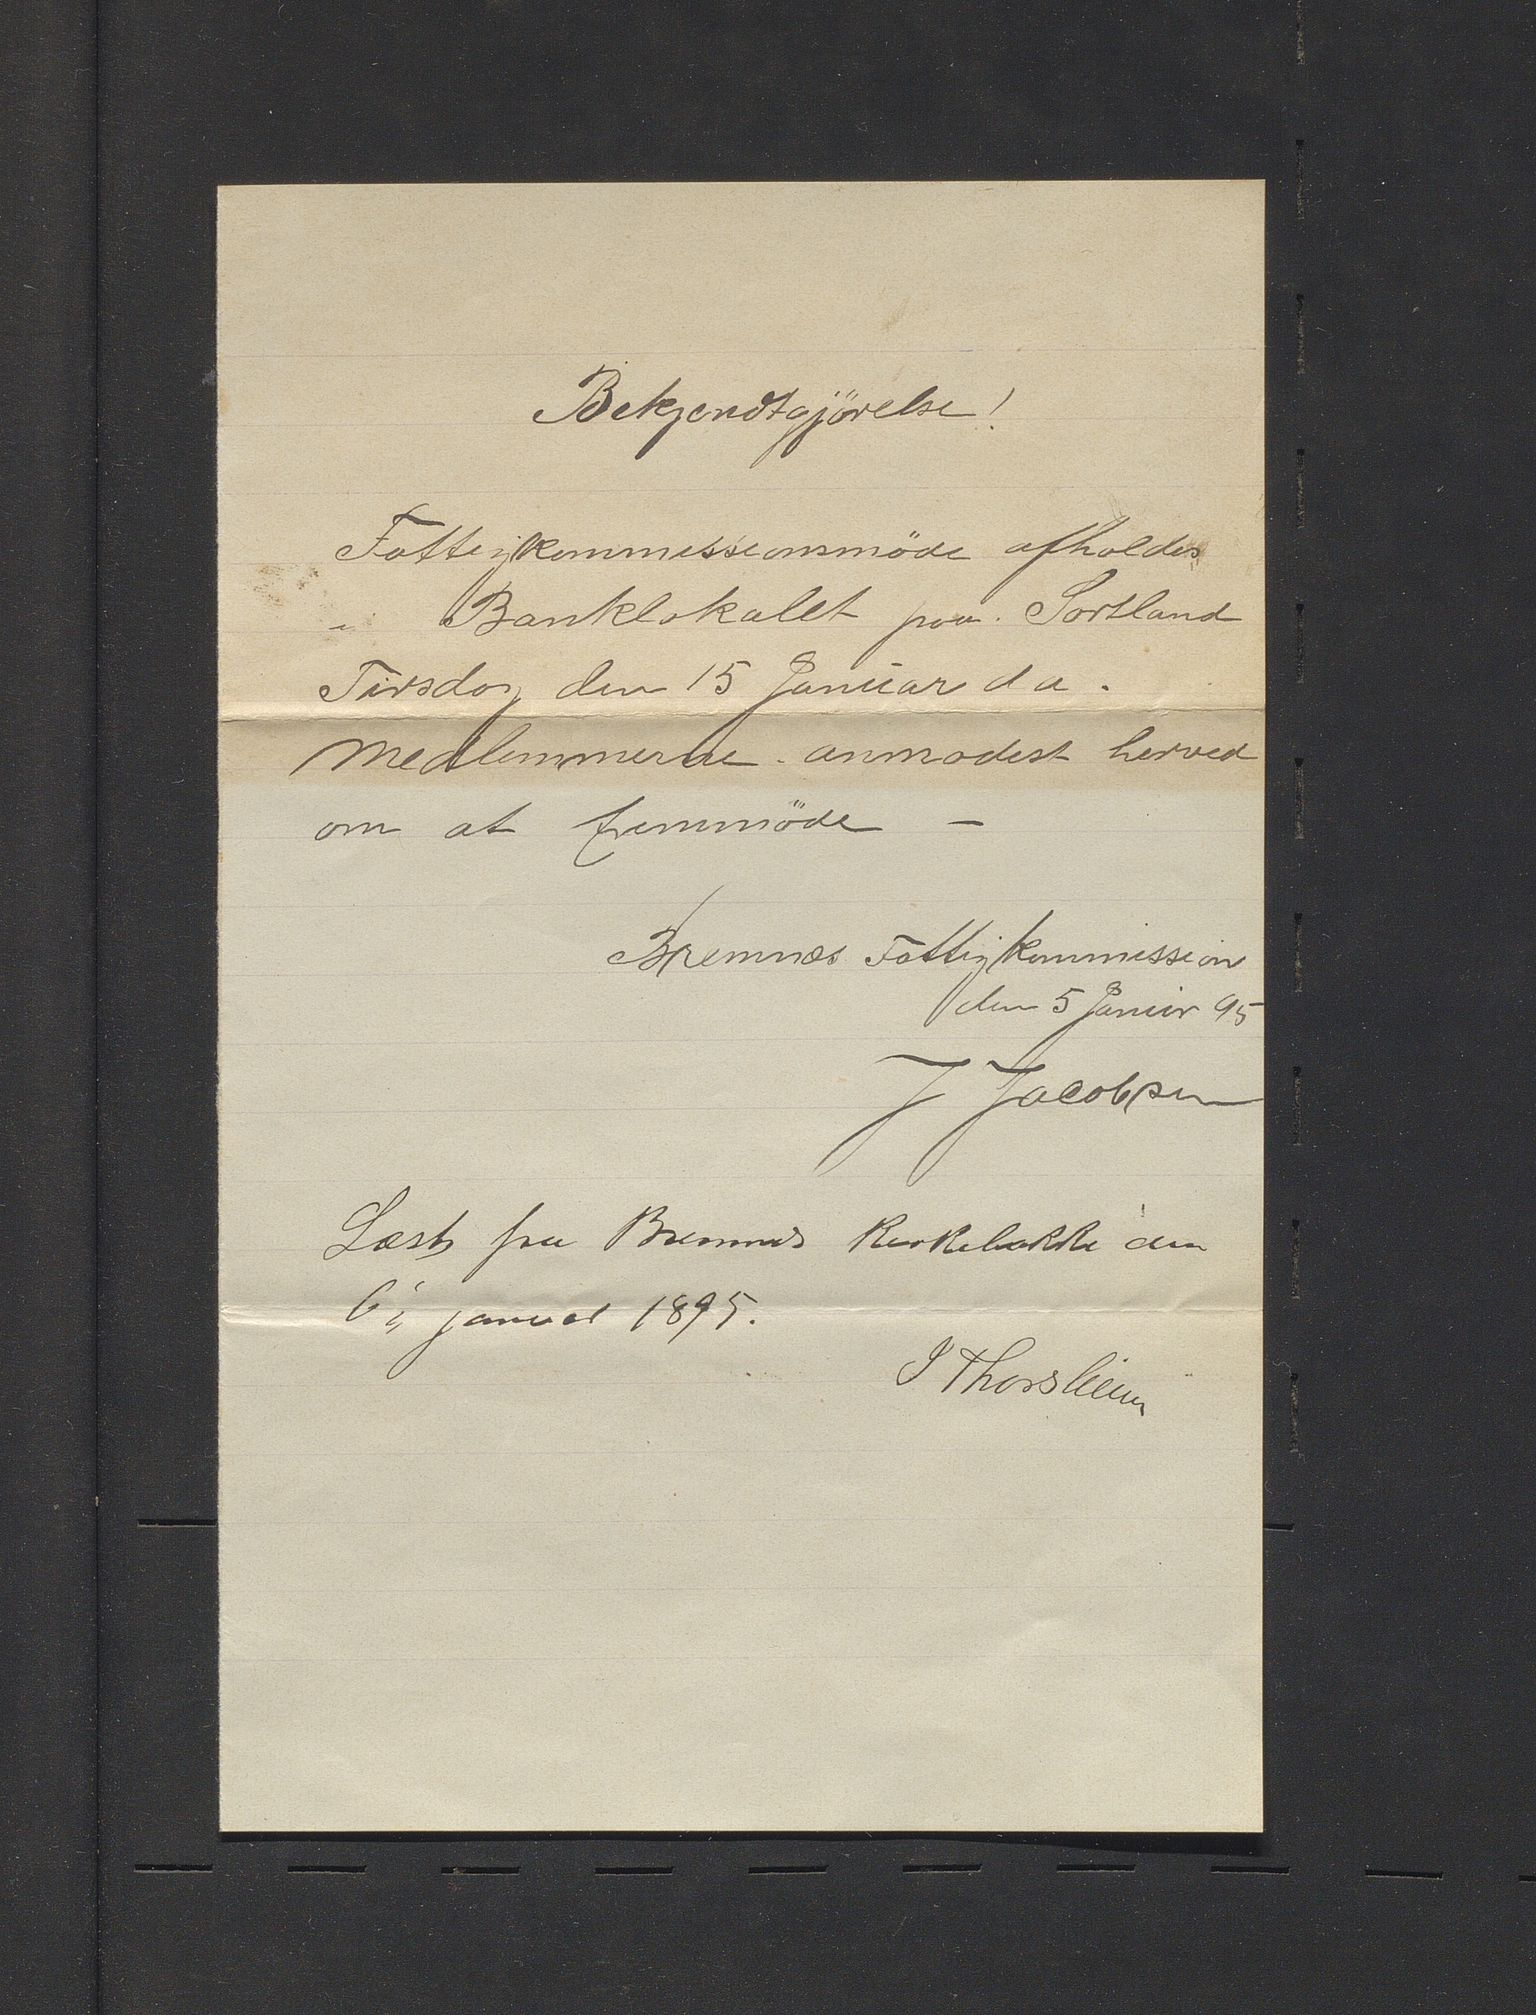 Bekjendtgjörelse!
Fattigkommissionsmöde afholdes
i Banklokalet paa Sortland
Tirsdag den 15 Januar d a.
Medlemmerne anmodest herved
om at fremmöde —
Bremnes Fattigkommission
den 5 Januar 95
J Jacobsen
Læst fra Bremnes Kirkebakke den
6/1 januar 1895.
J Thorsheim